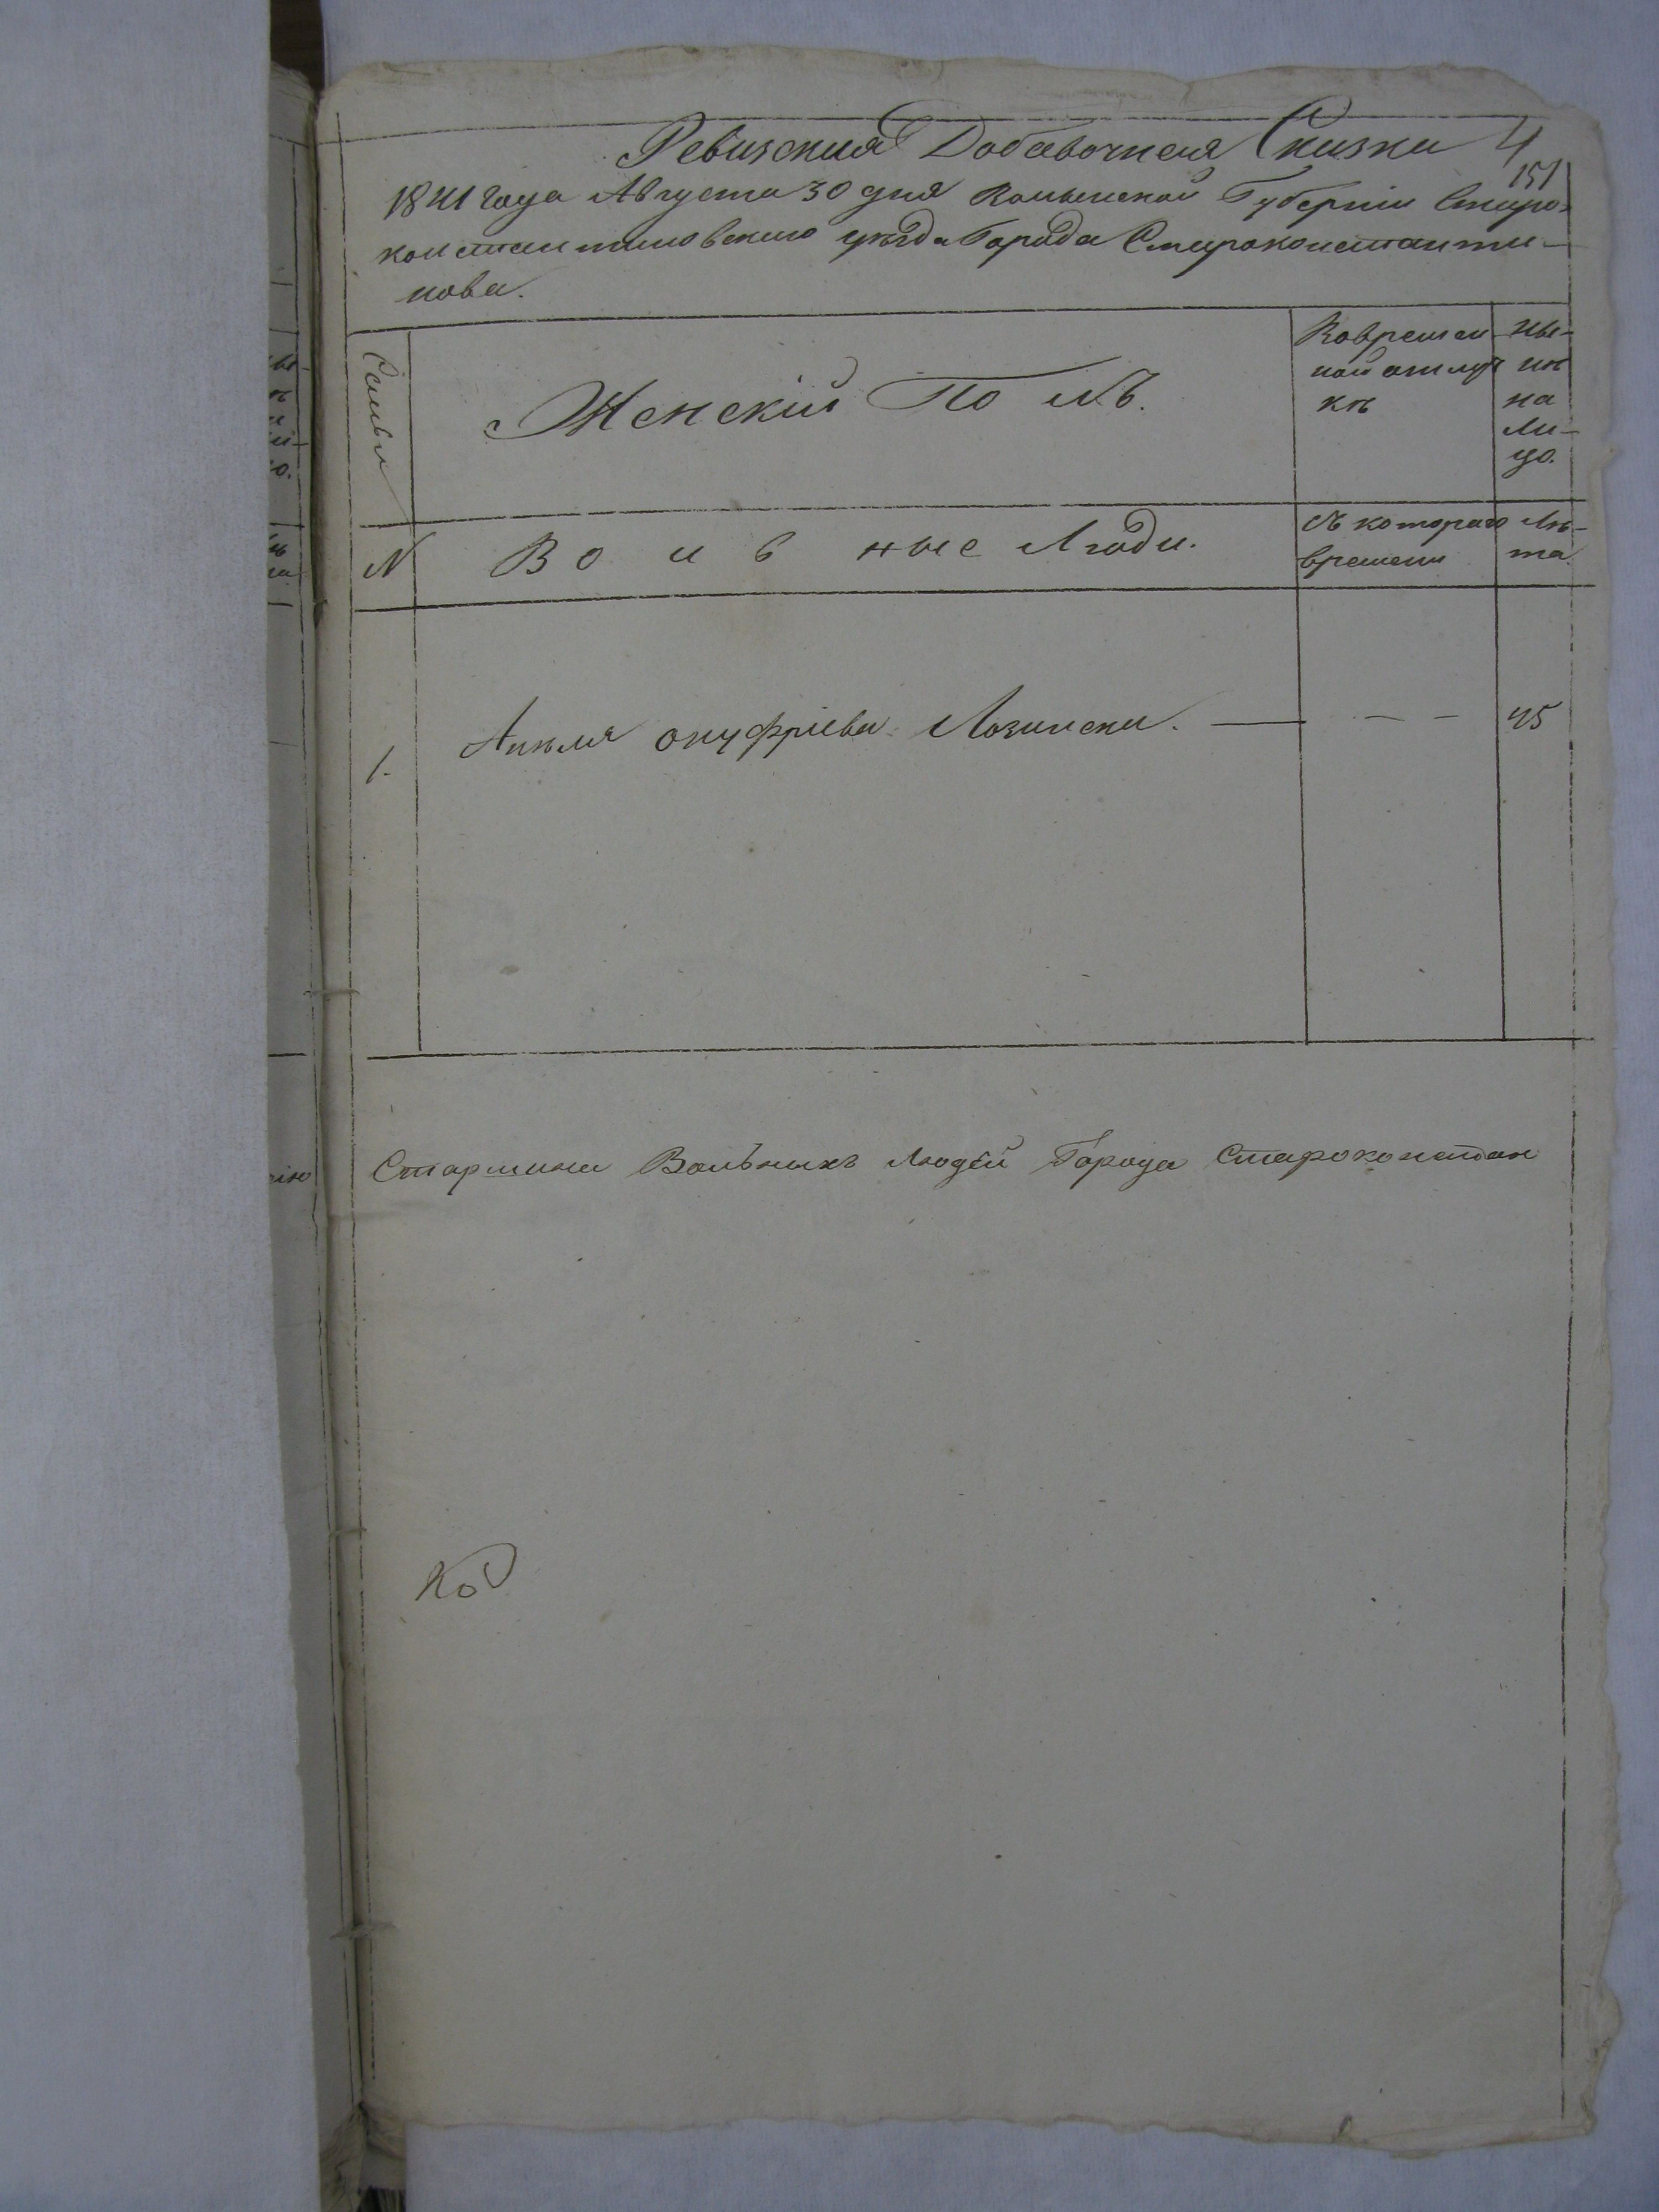 Ревизская Добавочная Сказка 4
151
1841 года Августа 30 дня Волынской Губерніи Старо-
константиновского уѣзда Города Староконстанти-
нова.
Семьи
Женскій Полъ.
Вовремен
ной отлуч
кѣ
Ны-
нѣ
на
Ли-
цо.
N
Вольные Люди.
Съ котораго
времени
Лѣ-
та.
1. Анеля Онуфріева Лозинска. — — — 45
Старшина Вольныхъ Людей Города Староконстан
Ко